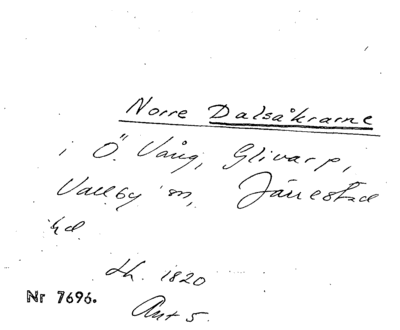 Norre Dalsåkrarne
i Ö. Vång, Glivarp,
Valleby sn, Järrestad
hd.
Lh. 1820
Nr 7696.
Akt 5.